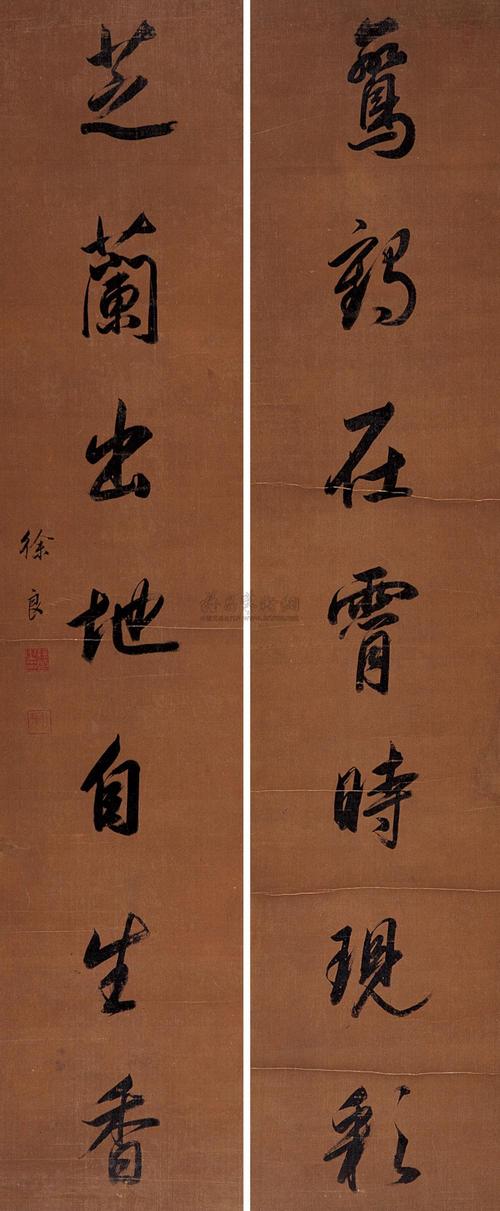 鸞鶴在霄時現彩
芝蘭出地自生香
徐良